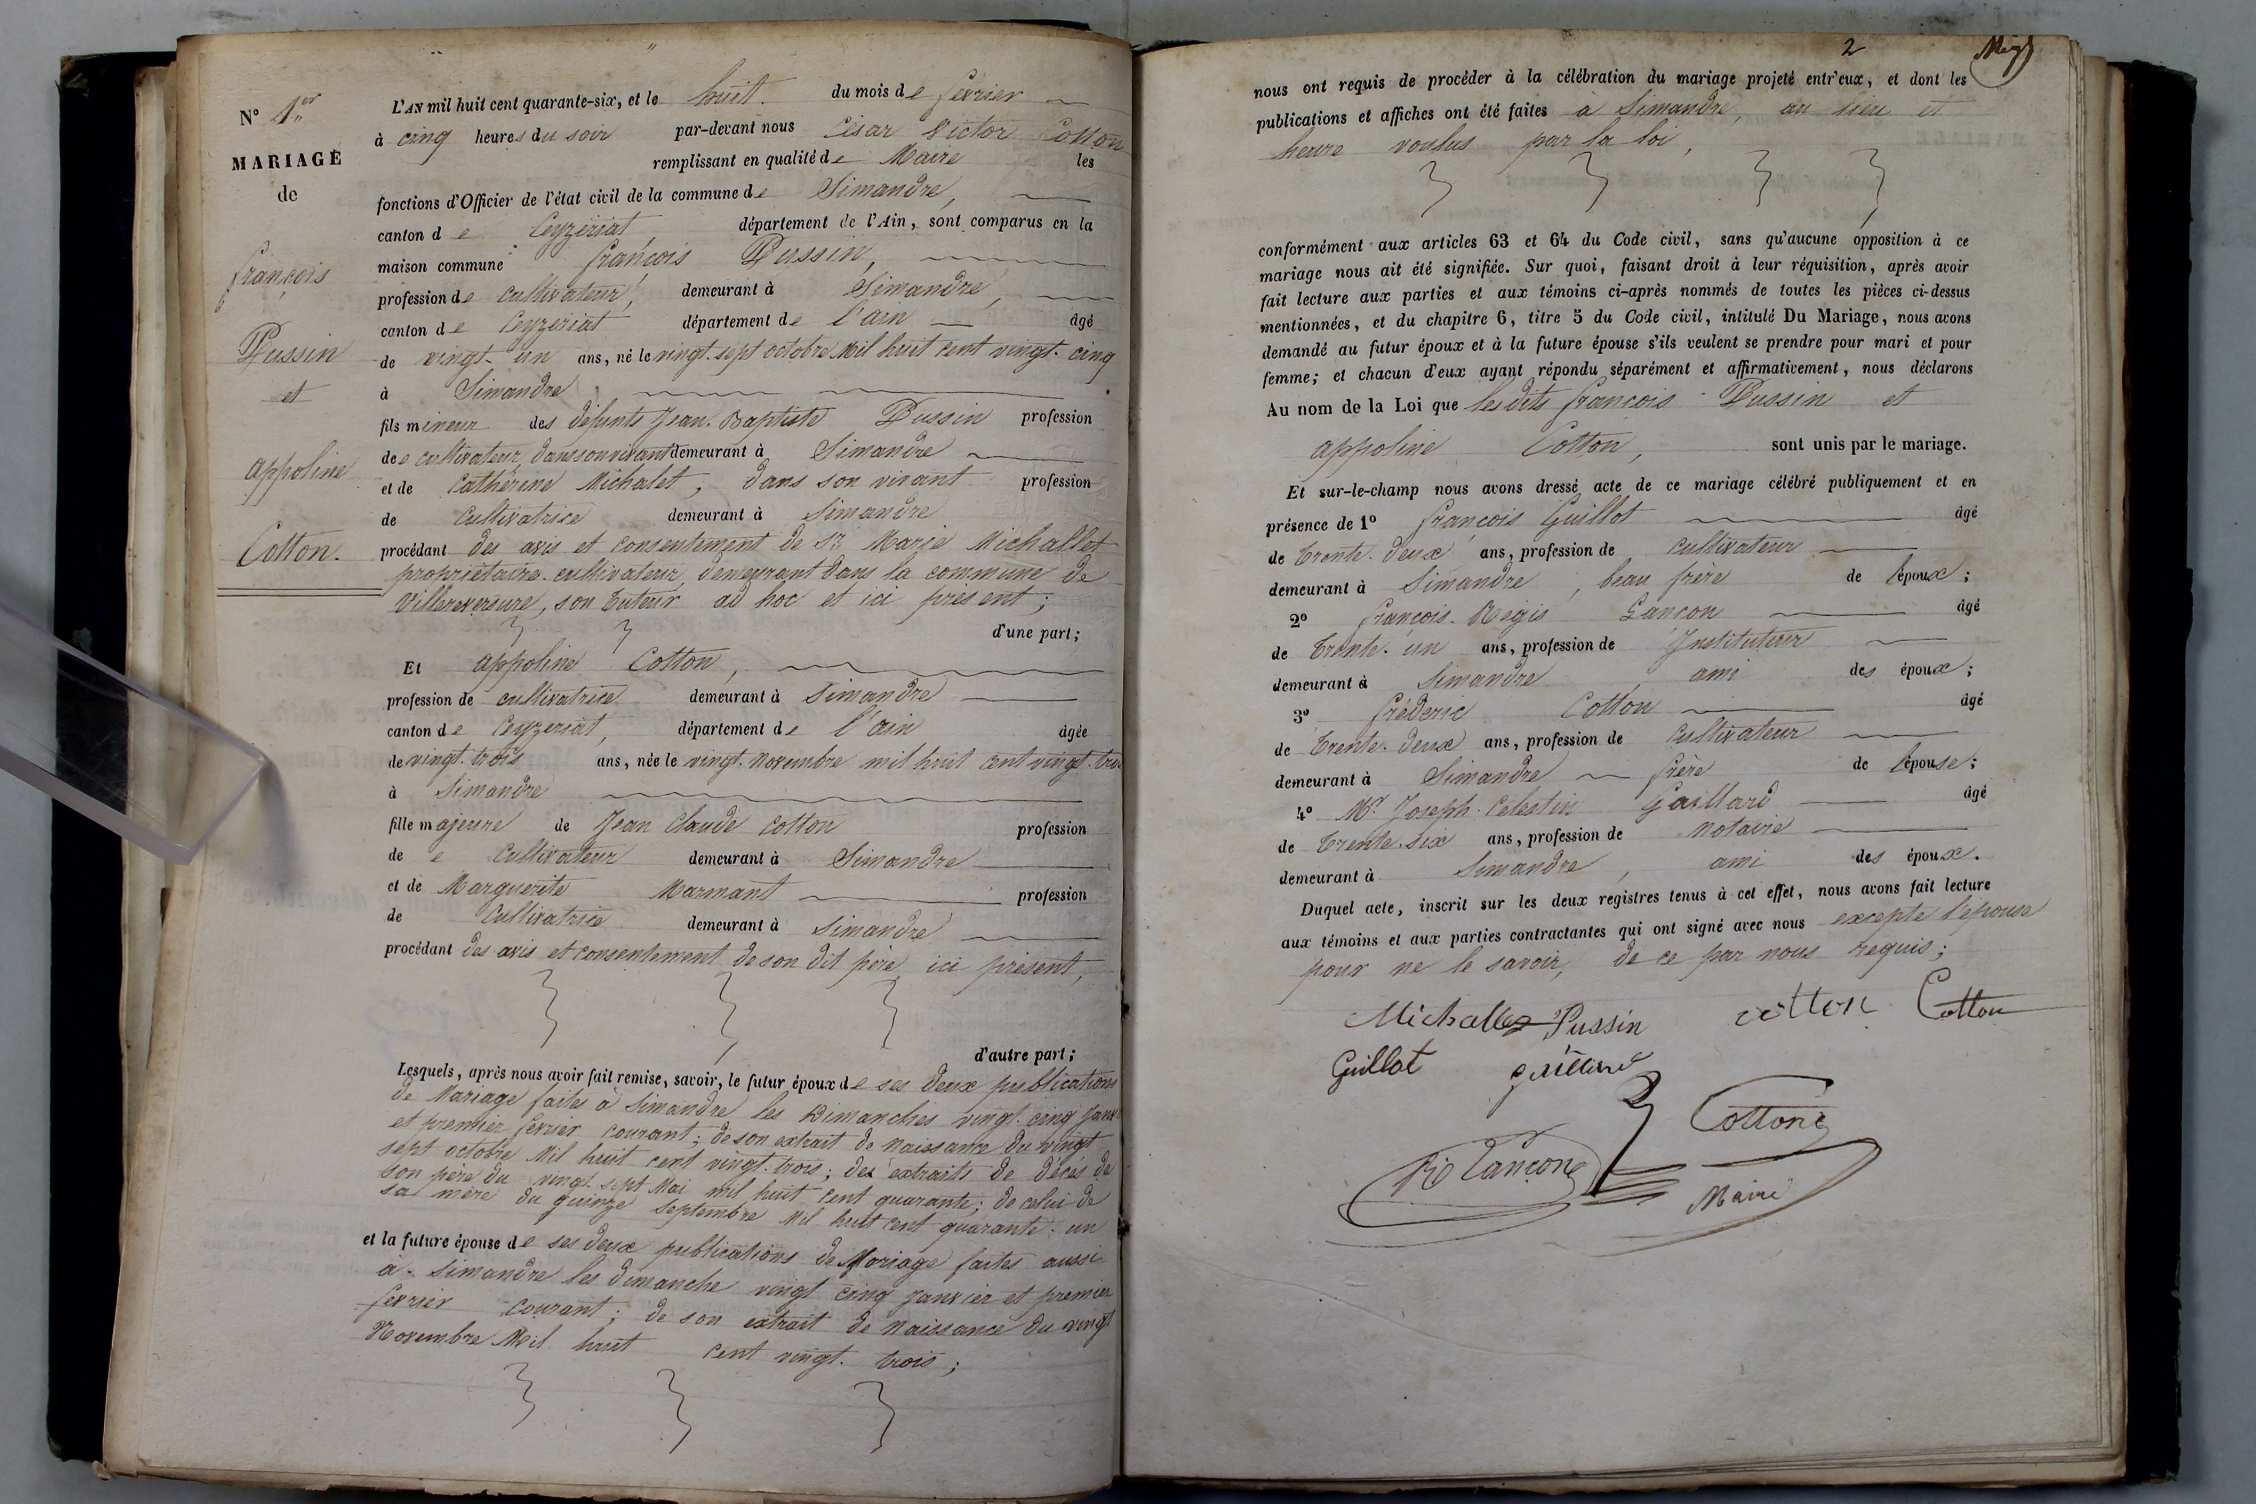 N° 1er
MARIAGE
de
françois
Pussin
et
appoline
Cotton.
L'AN mil huit cent quarante-six, et le huit. du mois de février
à cinq heures du soir par-devant nous César Victor Cotton
remplissant en qualité de Maire les
fonctions d'Officier de l'état civil de la commune de Simandre,
canton de Ceyzeriat, département de l'Ain, sont comparus en la
maison commune françois Pussin,
profession de cultivateur, demeurant à Simandre,
canton de Ceyzeriat département de l'ain âgé
de vingt-un ans, né le vingt-sept octobre Mil huit cent vingt-cinq
à Simandre
fils mineur des défunts Jean-Baptiste Pussin profession
de e cultivateur, dans son vivant demeurant à Simandre
et de Catherine Michalet, dans son vivant profession
de Cultivatrice demeurant à Simandre
procédant des avis et consentement de Sr Marie Michallet
propriétaire-cultivateur, demeurant dans la commune de
Villereversure, son tuteur ad hoc et ici présent;
d'une part;
Et appoline Cotton,
profession de cultivatrice demeurant à Simandre
canton de Ceyzeriat, département de l'ain âgée
de vingt-trois ans, née le vingt-Novembre mil huit cent vingt-trois
à Simandre
fille majeure de Jean Claude Cotton profession
de e Cultivateur demeurant à Simandre
et de Marguerite Marmant profession
de Cultivatrice demeurant à Simandre
procédant des avis et consentement de son dit père, ici présent,
d'autre part;
Lesquels, après nous avoir fait remise, savoir, le futur époux de ses deux publications
de Mariage faites à Simandre les Dimanches vingt-cinq janv
et premier février courant; de son extrait de Naissance du vingt
sept octobre Mil huit cent vingt-trois; des extraits de Décès de
son père du vingt-sept Mai mil huit cent quarante; de celui de
sa mère du quinze septembre Mil huit cent quarante-un
et la future épouse de ses deux publications de Mariage faites aussi
à Simandre les dimanche vingt cinq janvier et premier
février courant; de son extrait de Naissance du vingt
Novembre Mil huit cent vingt-trois;
2
nous ont requis de procéder à la célébration du mariage projeté entr'eux, et dont les
publications et affiches ont été faites à Simandre, au lieu et
heure voulus par la loi,
conformément aux articles 63 et 64 du Code civil, sans qu'aucune opposition à ce
mariage nous ait été signifiée. Sur quoi, faisant droit à leur réquisition, après avoir
fait lecture aux parties et aux témoins ci-après nommés de toutes les pièces ci-dessus
mentionnées, et du chapitre 6, titre 5 du Code civil, intitulé Du Mariage, nous avons
demandé au futur époux et à la future épouse s'ils veulent se prendre pour mari et pour
femme; et chacun d'eux ayant répondu séparément et affirmativement, nous déclarons
Au nom de la Loi que lesdits francois Pussin et
appoline Cotton, sont unis par le mariage.
Et sur-le-champ nous avons dressé acte de ce mariage célébré publiquement et en
présence de 1° françois Guillot âgé
de trente-deux ans, profession de cultivateur
demeurant à Simandre, beau frère de l'époux;
2° françois-Régis Lançon âgé
de trente-un ans, profession de Instituteur
demeurant à Simandre, ami des époux;
3° fréderic Cotton âgé
de trente-deux ans, profession de cultivateur
demeurant à Simandre frère de l'épouse;
4° Mr Joseph-Celestin Gaillard âgé
de trente-six ans, profession de notaire
demeurant à Simandre, ami des époux.
Duquel acte, inscrit sur les deux registres tenus à cet effet, nous avons fait lecture
aux témoins et aux parties contractantes qui ont signé avec nous excepté l'épouse
pour ne le savoir, de ce par nous requis;
Michallet Pussin cotton Cotton
Guillot gaillard
Cotton
R Lançon
Maire